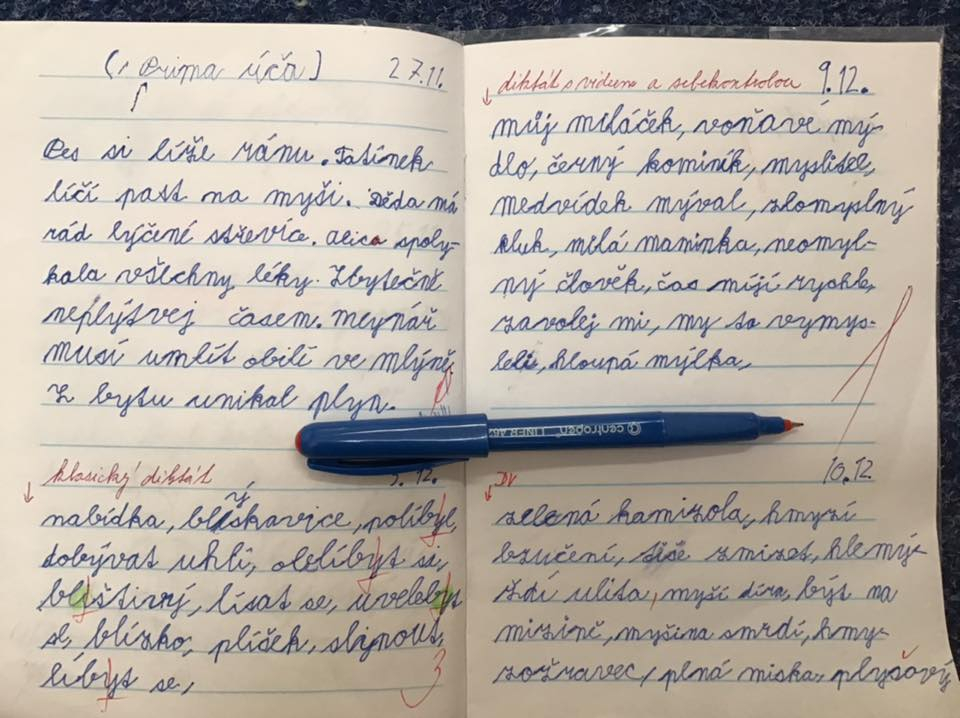 ( Prima úča) 27.11.
Pes si líže ránu. Tatínek
líčí past na myši. Děda má
rád lýčené střevíce. Alica spoly-
kala všechny léky. Zbytečně
neplýtvej časem. Mlynář
musí umlít obilí ve mlýně.
Z bytu unikal plyn.
klasický diktát .12.
nabídka, blýskavice, políbyl,
dobývat uhlí, oblíbyt si,
blištivý, lísat se, uvelebyt
se, blízko, plíček, slynout,
líbyt se,
3
diktát s videem a sebekontrolou 9.12.
můj miláček, voňavé mý-
dlo, černý kominík, myslitel,
medvídek mýval, zlomyslný
kluk, milá maminka, neomyl-
ný člověk, čas míjí rychle,
zavolej mi, my to vymys-
leli, hloupá mýlka,
1
centropen LINER
DÚ 10.12.
zelená kamizola, hmyzí
bzučení, tiše zmizet, hlemý-
ždí ulita, myší díra, být na
mizině, myšina smrdí, hmy-
zožravec, plná miska, plyšový